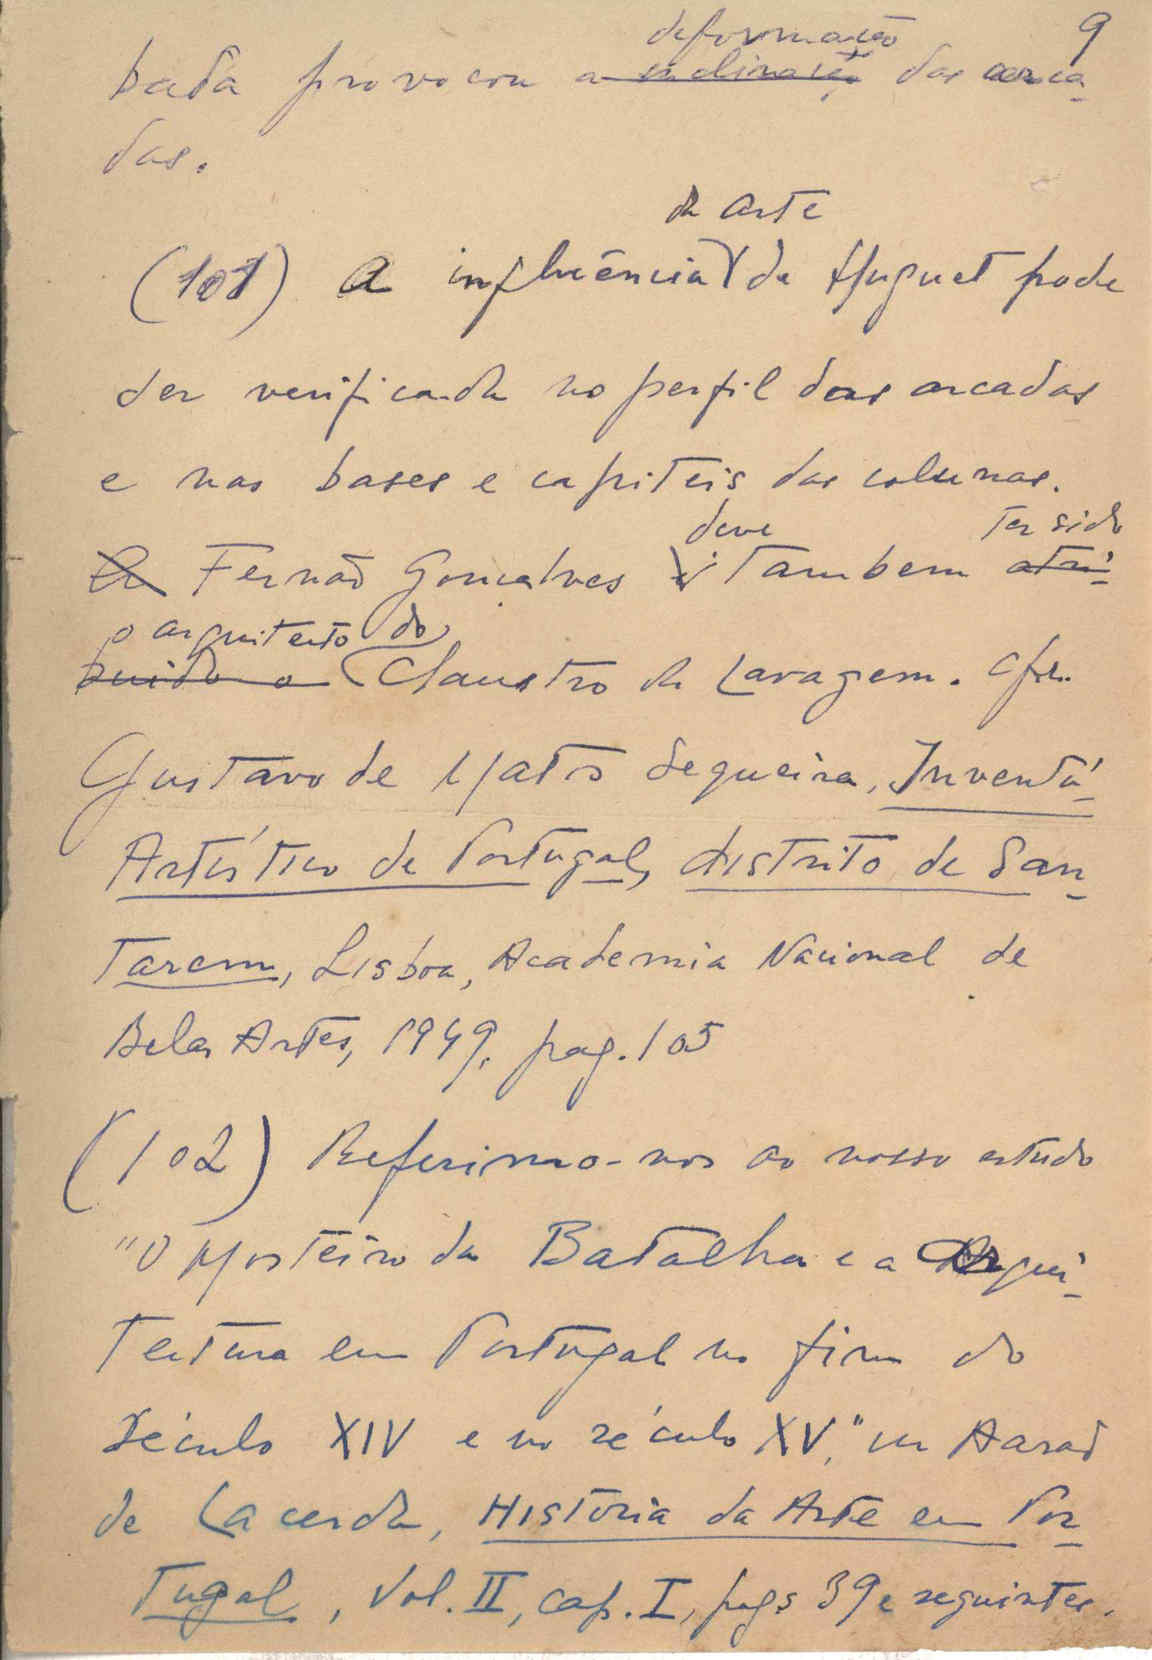 9
deformação
bada provocou a inclinação das arca-
das.
da arte
(101) A influência de Huguet pode
ser verificada no perfil das arcadas
e nas bases e capiteis das colunas.
deve ter sido
A Fernão Gonçalves é tambem atri-
o arquitecto do
buido o Claustro da Lavagem. Cfr.
Gustavo de Matos Sequeira, Inventá-
Artístico de Portugal, distrito de San-
tarem, Lisboa, Academia Nacional de
Belas Artes, 1949, pag. 105
(102) Referimo-nos ao nosso estudo
"O Mosteiro da Batalha e a Arqui-
tectura em Portugal no fim do
século XIV e no século XV," in Aarão
de Lacerda, História da Arte em Por-
tugal, Vol. II, cap. I, pags 39 e seguintes.